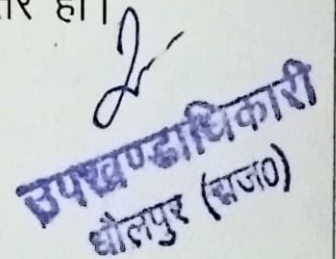 हो।
उपखण्डाधिकारी
धौलपुर (राज0)